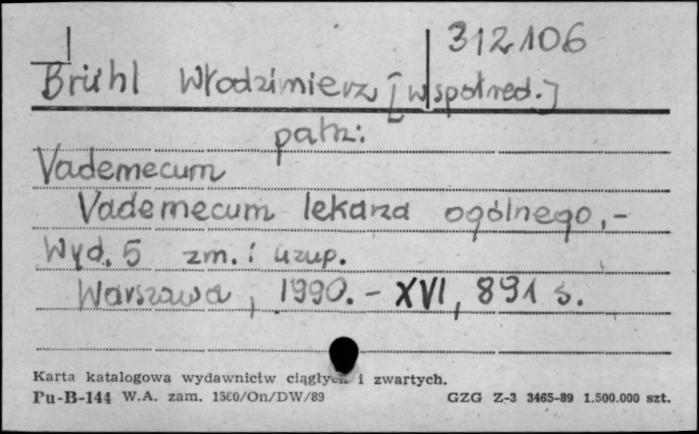 312106
Brühl Włodzimierz [współred.]
patrz:
Vademecum
Vademecum lekarza ogólnego.-
Wyd. 5 zm. i uzup.
Warszawa, 1990. - XVI, 891 s.
Karta katalogowa wydawnictw ciągłych i zwartych.
Pu-B-144 W.A. zam. 1500/On/DW/89 GZG Z-3 3465-89 1.500.000 szt.